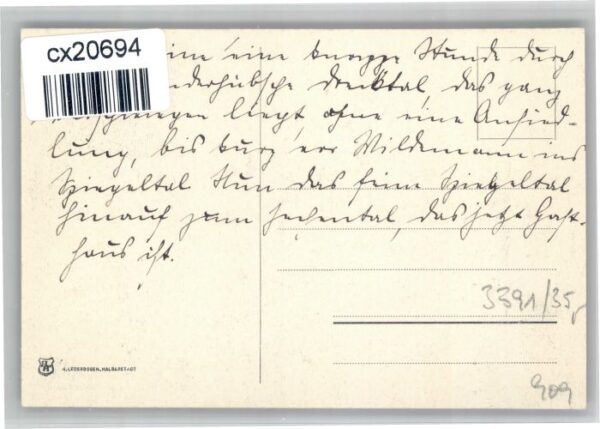 cx20694
eine knappe Stunde durch
wunderhübsche das ganz
verschwiegen liegt, ohne eine Ansied-
lung, bis kurz vor Wildemann ins
Spiegeltal. Nun das feine Spiegeltal
hinauf zum Zechental, das jetzt Gast-
haus ist.
3391/35,-
909
H. LEDERBOGEN, HALBERSTADT